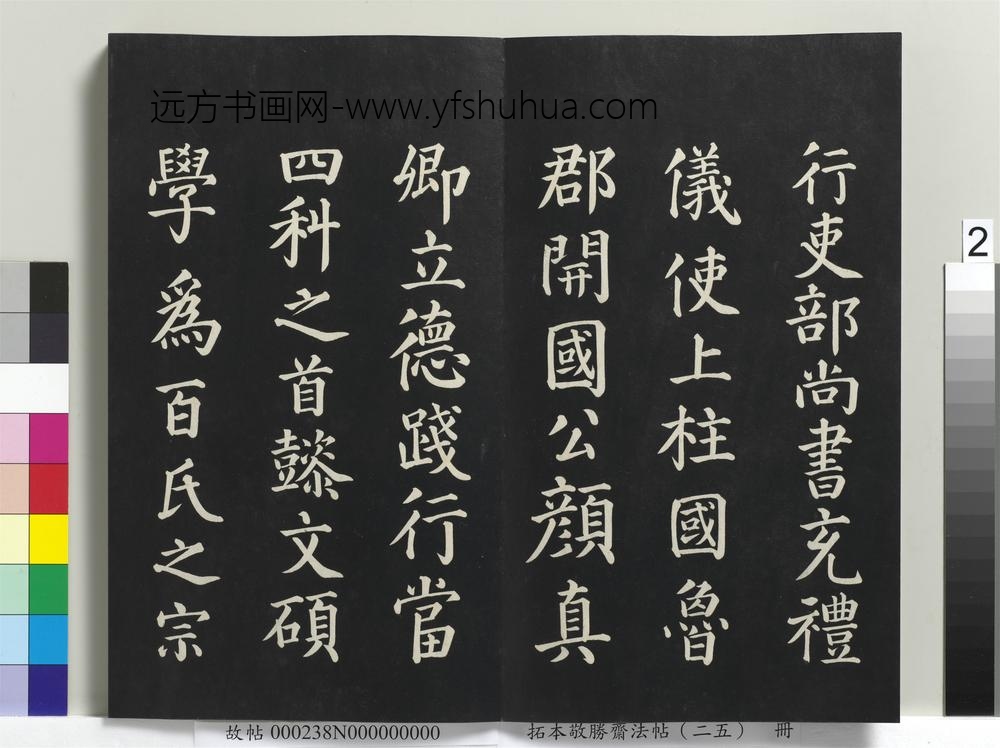 远方书画网-www.yfshuhua.com
行吏部尚書充禮
儀使上柱國魯
郡開國公顔真
卿立德踐行當
四科之首懿文碩
學為百氏之宗
2
故帖 000238N000000000
拓本敬勝齋法帖(二五) 冊